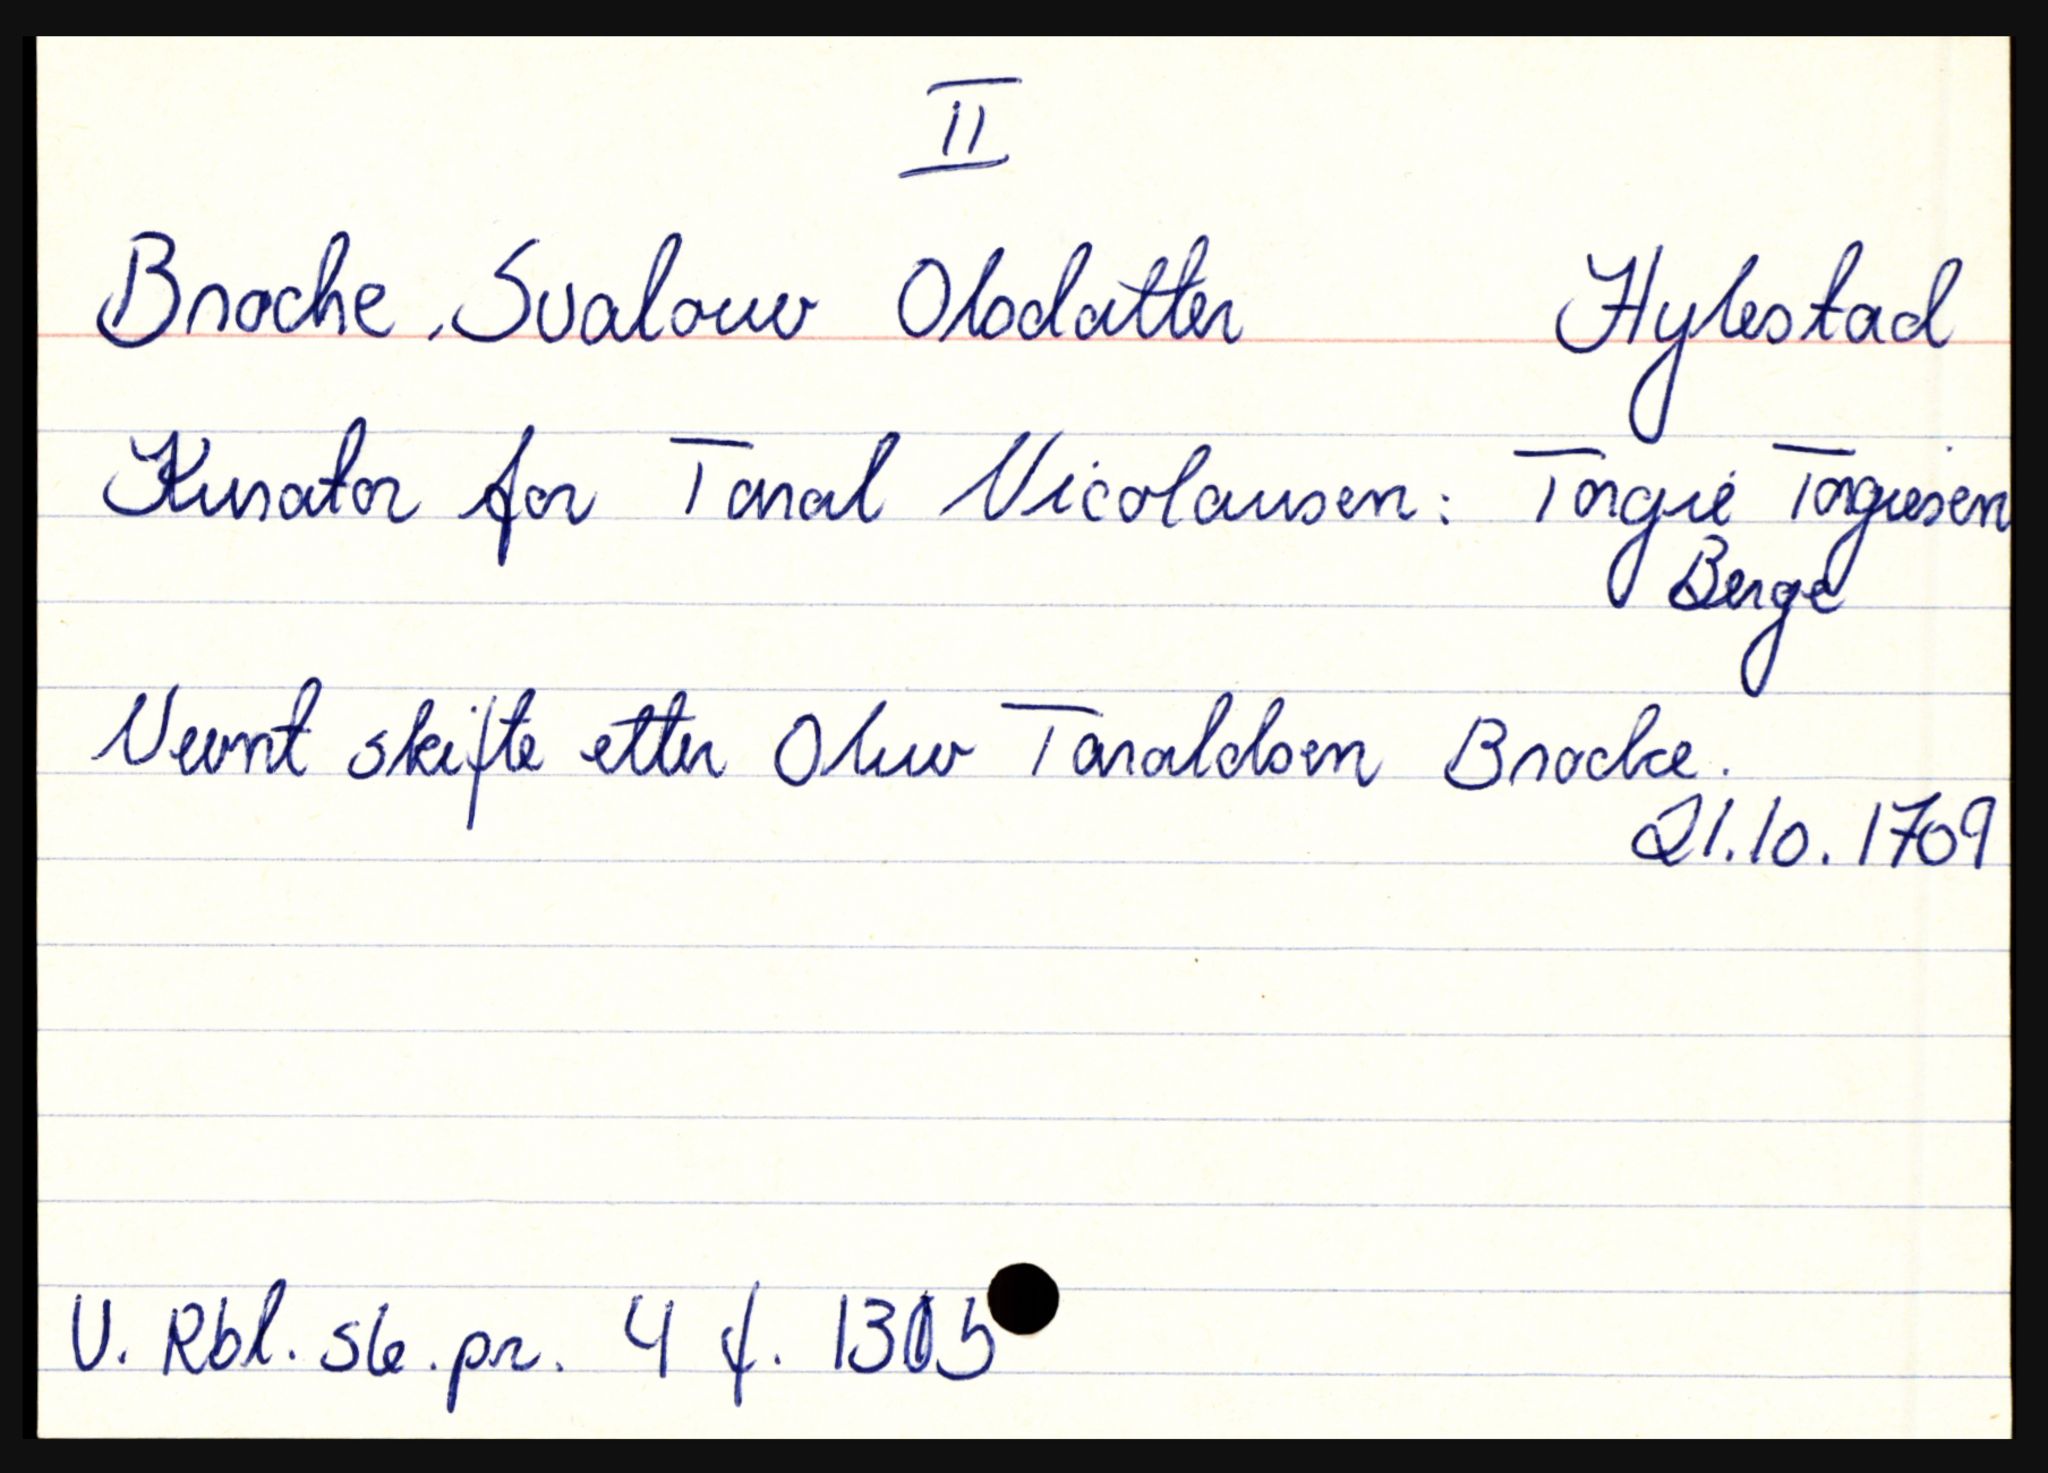 II
Brocke, Svalouw Olsdatter Hylestad
Kurator for Taral Nicolausen: Torgie Torgiesen
Berge
Nevnt skifte etter Oluw Taraldsen Brocke.
21.10.1709
V. Rbl. sk. pr. 4 f. 1305